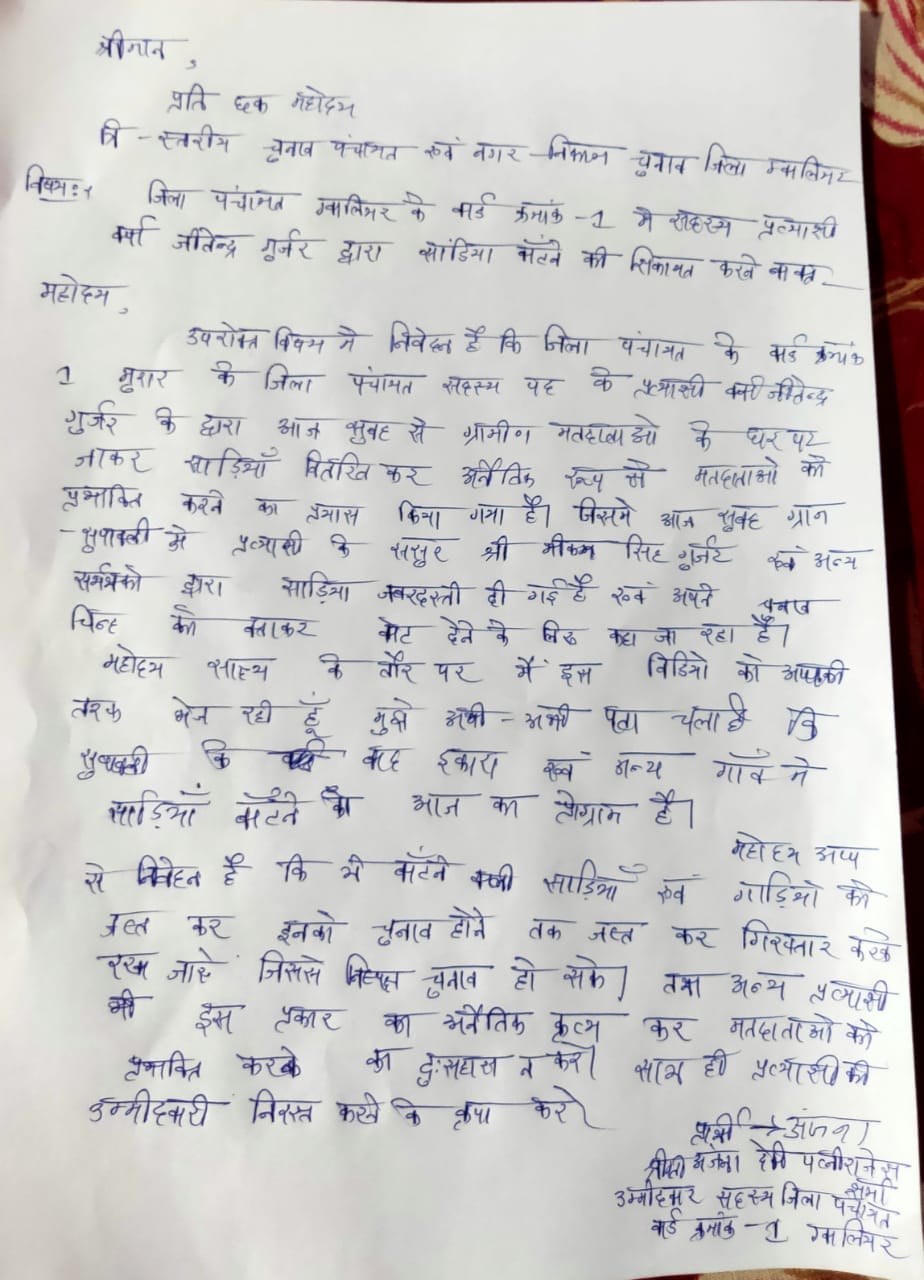 श्रीमान,
प्रति छक महोदय
त्रि-स्तरीय चुनाव पंचायत एवं नगर-निकाय चुनाव जिला ग्वालियर
विषय:- जिला पंचायत ग्वालियर के वार्ड क्रमांक-1 मे सदस्य प्रत्याशी
वर्षा जीतेन्द्र गुर्जर द्वारा सांडिया बाँटने की सिकायत करने बाबत
महोदय,
उपरोक्त विषय मे निवेदन है कि जिला पंचायत के वार्ड क्रमांक
1 मुरार के जिला पंचायत सदस्य पद के प्रत्याशी वर्षा जीतेन्द्र
गुर्जर के द्वारा आज सुबह से ग्रामीण मतदाताओ के घर पर
जाकर साड़ियाँ वितरित कर अनैतिक रूप से मतदाताओ को
प्रभावित करने का प्रयास किया गया है। जिसमे आज सुबह ग्राम
सुपावली मे प्रत्याशी के ससुर श्री भीकम सिंह गुर्जर एवं अन्य
सर्मथको द्वारा साड़िया जबरदस्ती दी गई है एवं अपने चुनाव
चिन्ह को बताकर वोट देने के लिए कहा जा रहा है।
महोदय साक्ष्य के तौर पर मैं इस विडियो को आपकी
तरफ भेज रही हूँ मुझे अभी-अभी पता चला है कि
सुपावली कि बाद इकारा एवं अन्य गाँव मे
साड़ियाँ बाँटने का आज का प्रोग्राम है।
महोदय आप
से निवेदन है कि ये बाँटने वाली साड़ियाँ एवं गाड़ियो को
जप्त कर इनको चुनाव होने तक जप्त कर गिरफ्तार करके
रखा जाऐ जिससे निष्पक्ष चुनाव हो सके। तथा अन्य प्रत्याशी
भी इस प्रकार का अनैतिक कृत्य कर मतदाताओ को
प्रभावित करके का दुःसहास न करे। साथ ही प्रत्याशी की
उम्मीदवारी निरस्त करने कि कृपा करे।
प्रार्थी → अंजना
श्रीमती अंजना देवी पत्नी राजेस
शर्मा
उम्मीदवार सदस्य जिला पंचायत
वार्ड क्रमांक-1 ग्वालियर